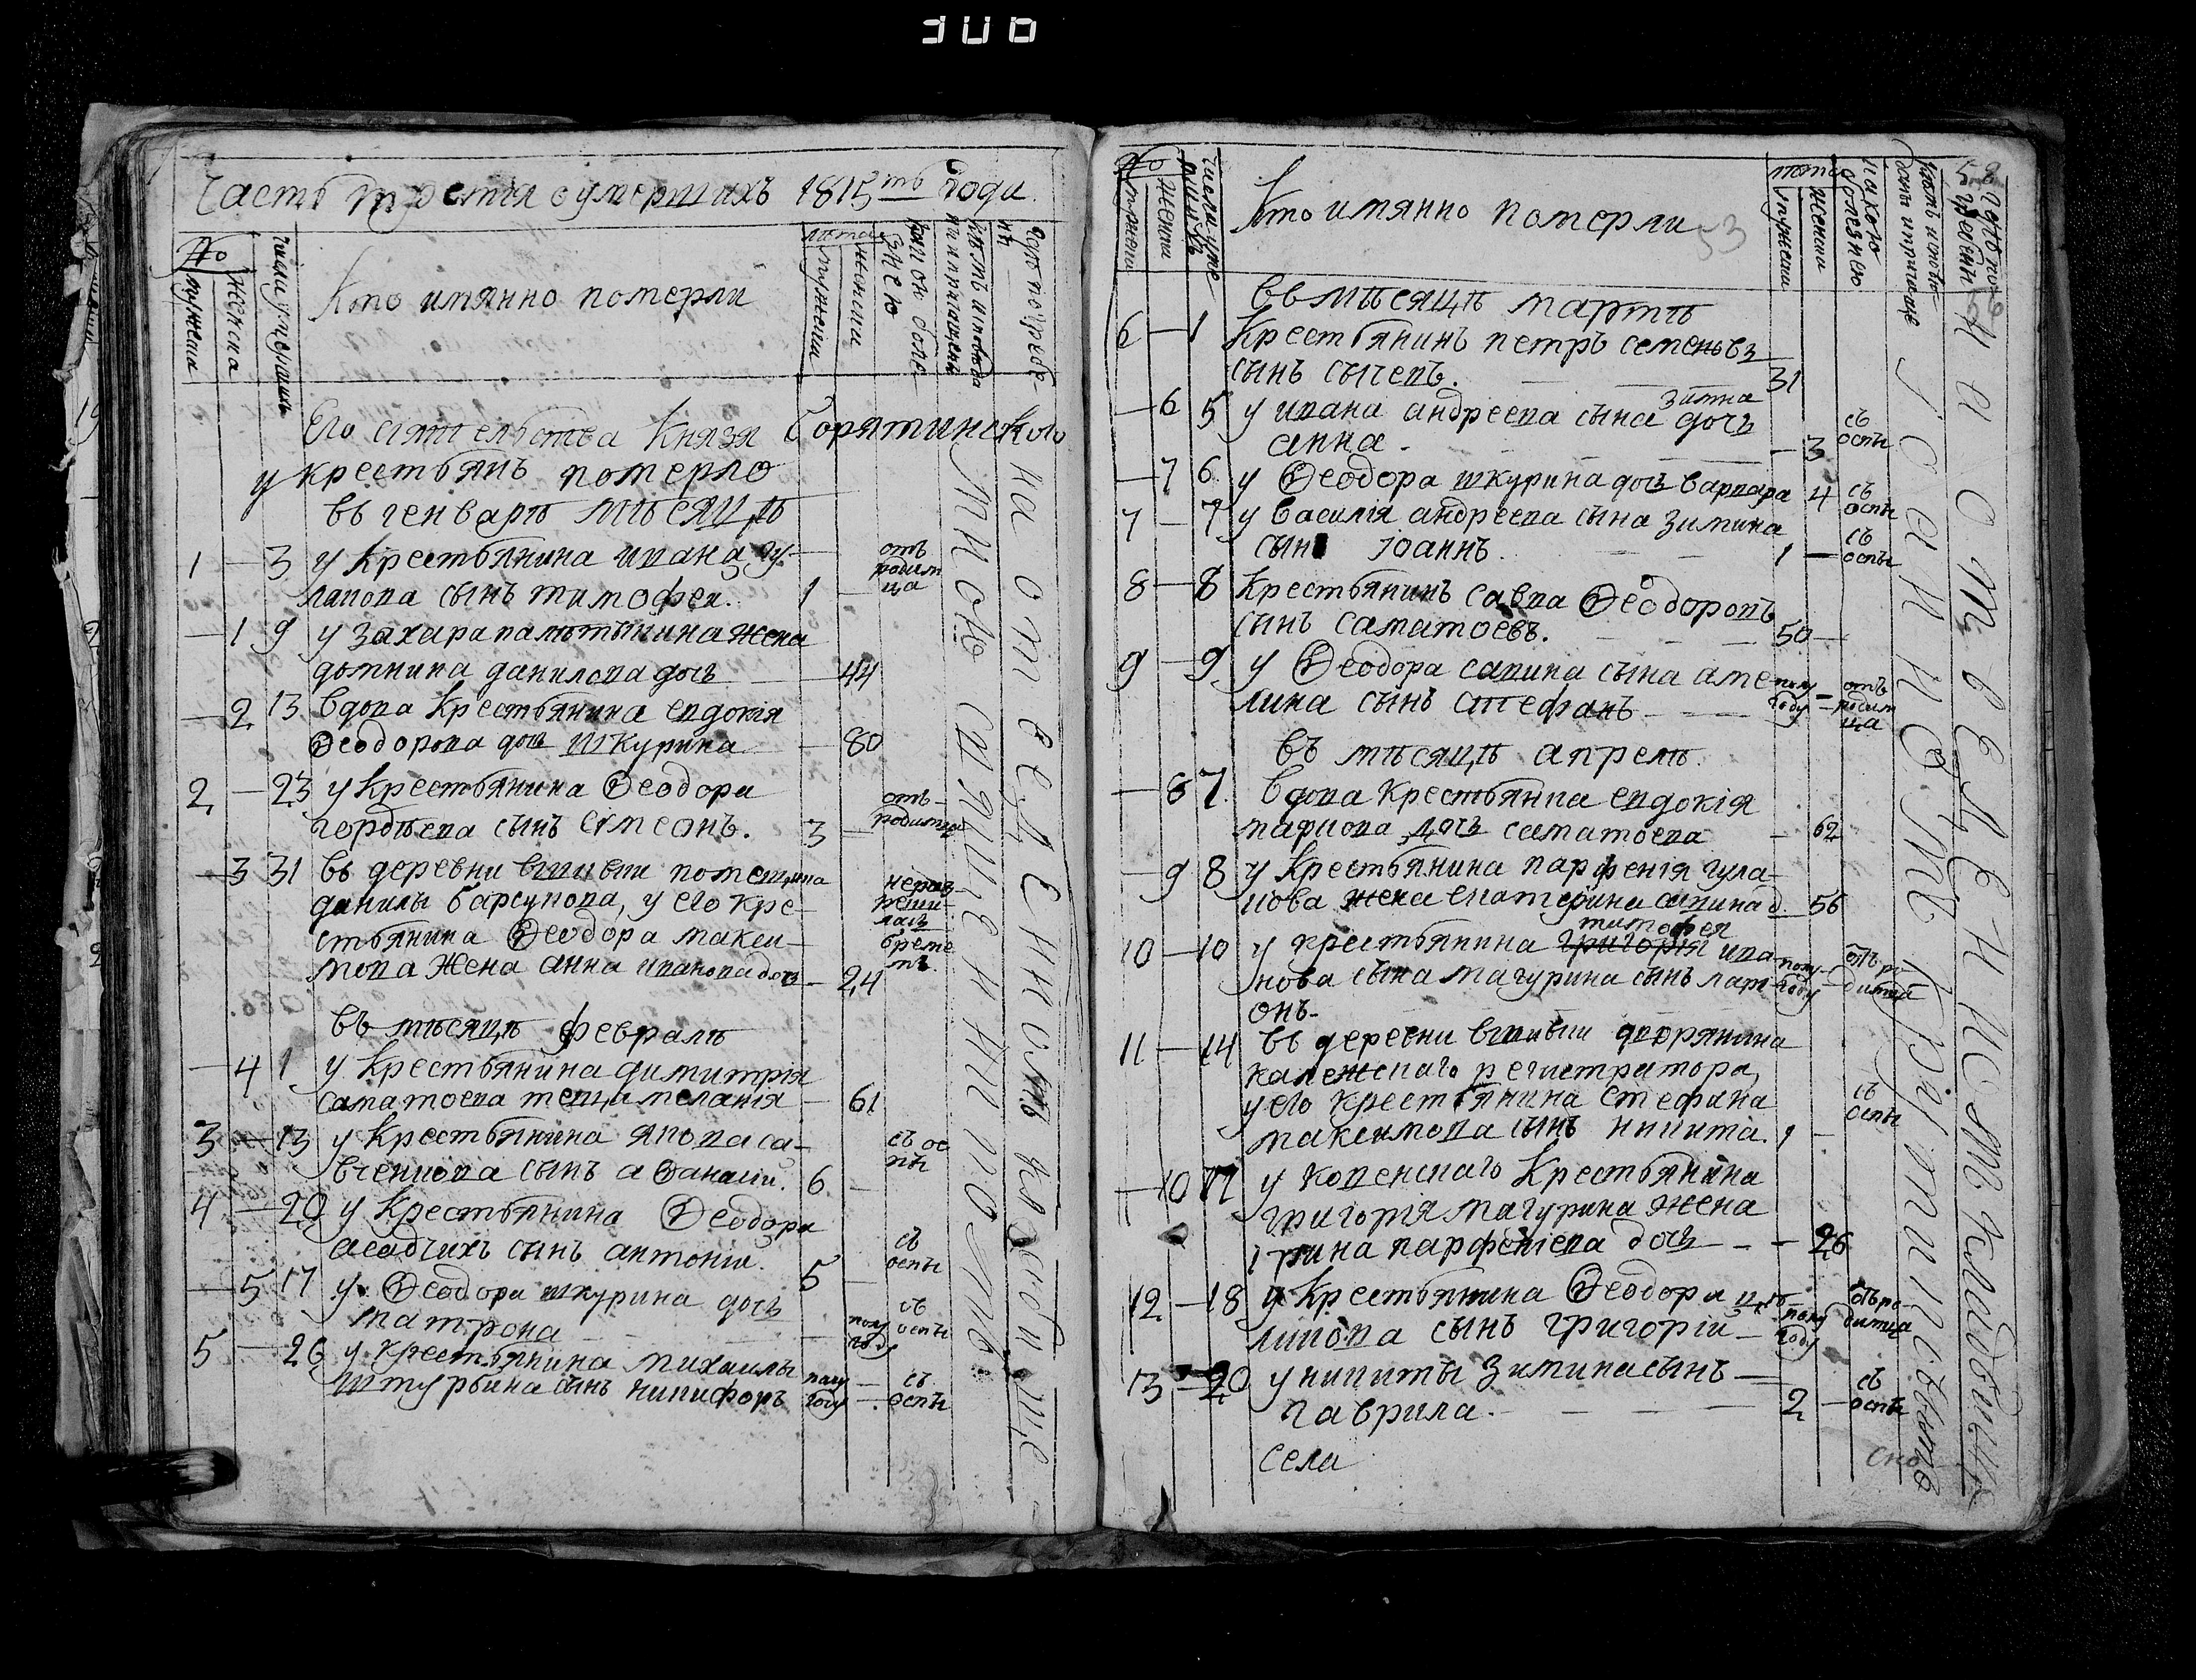 306
Часть третiя о умершихъ 1815тъ года.
№
мужеска
женска
числа умершихъ
Кто имянно померли
лѣта
мужеска
женска
Его сiятельства Князя Борятинского
у крестьянъ померло
въ генварѣ мѣсяцѣ
1 — 3 у крестьянина ивана гу-
лакова сынъ тимофеи. 1 — отъ родимца
— 1 9 у захара жена
домнина данилова дочь — 44
— 2 13 вдова крестьянина евдокiя
Ѳеодорова дочь шкурина — 80
2 — 23 у крестьянина Ѳеодора
гордѣева сынъ симеонъ. 3 — отъ родимца
— 3 31 въ деревни помещика
данилы барсукова, у его кре-
стьянина Ѳеодора макси-
мова жена анна иванова дочь — 24
въ мѣсяцѣ февралѣ
— 4 1 у крестьянина димитрiя
саматоева теща меланiя — 61
3 — 13 у крестьянина якова са-
вченкова сынъ аѲанасiи. 6 — съ оспы
4 — 20 у крестьянина Ѳеодора
асадчихъ сынъ антонiи. 5 — съ оспы
— 5 17 у Ѳеодора шкурина дочь
матрона — полугоду съ оспы
5 — 26 у крестьянина михаилы
штурбина сынъ никифоръ полугоду — съ оспы
на отведенномъ кладбище
58
№
мужески
женски
Кто имянно померли
53
лѣта
мужески
женски
какою болезнею
въ мѣсяцѣ мартѣ
6 — 1 крестьянинъ петръ семеновъ
сынъ сычевъ. 31
зимина
— 6 5 у ивана андреева сына дочь
анна — 3 съ оспы
— 7 6 у Ѳеодора шкурина дочь варвара 4 съ оспы
7 — 7 у василiя андреева сына зимина
сынъ Iоаннъ. 1 — съ оспы
8 — 8 крестьянинъ савва Ѳеодоровъ
сынъ саматоевъ. 50 —
9 — 9 у Ѳеодора савина сына аме-
лина сынъ стефанъ полугоду — отъ родимца
въ мѣсяцѣ апрелѣ.
— 8 7. вдова крестьянка евдокiя
маркова дочь саматоева — 62
— 9 8 у крестьянина парфенiя гула-
кова жена екатерина савина д. 56
тимофея
10 — 10 у крестьянина григорiя ива-
нова сына магурина сынъ лари- полугоду — отъ родимца
онъ
11 — 14 въ деревни дворянина
каленскаго регистратора,
у его крестьянина стефана
максимова сынъ никита. 1 — съ оспы
— 10 17 у копенскаго крестьянина
григорiя магурина жена
iрина парфенiева дочь — 26
12 — 18 у крестьянина Ѳеодора
сынъ григорiи — полугоду отъ родимца
13 — 20 у никиты зимина сынъ
гаврила. 2 — съ оспы
на отведенномъ кладбищѣ
села